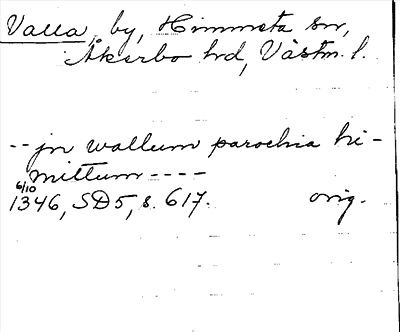 Valla, by, Himmeta sn,
Åkerbo hrd, Västm. l.
-- jn wallum parochia hi-
mittum ----
6/10
1346, SD5, s. 617. orig.